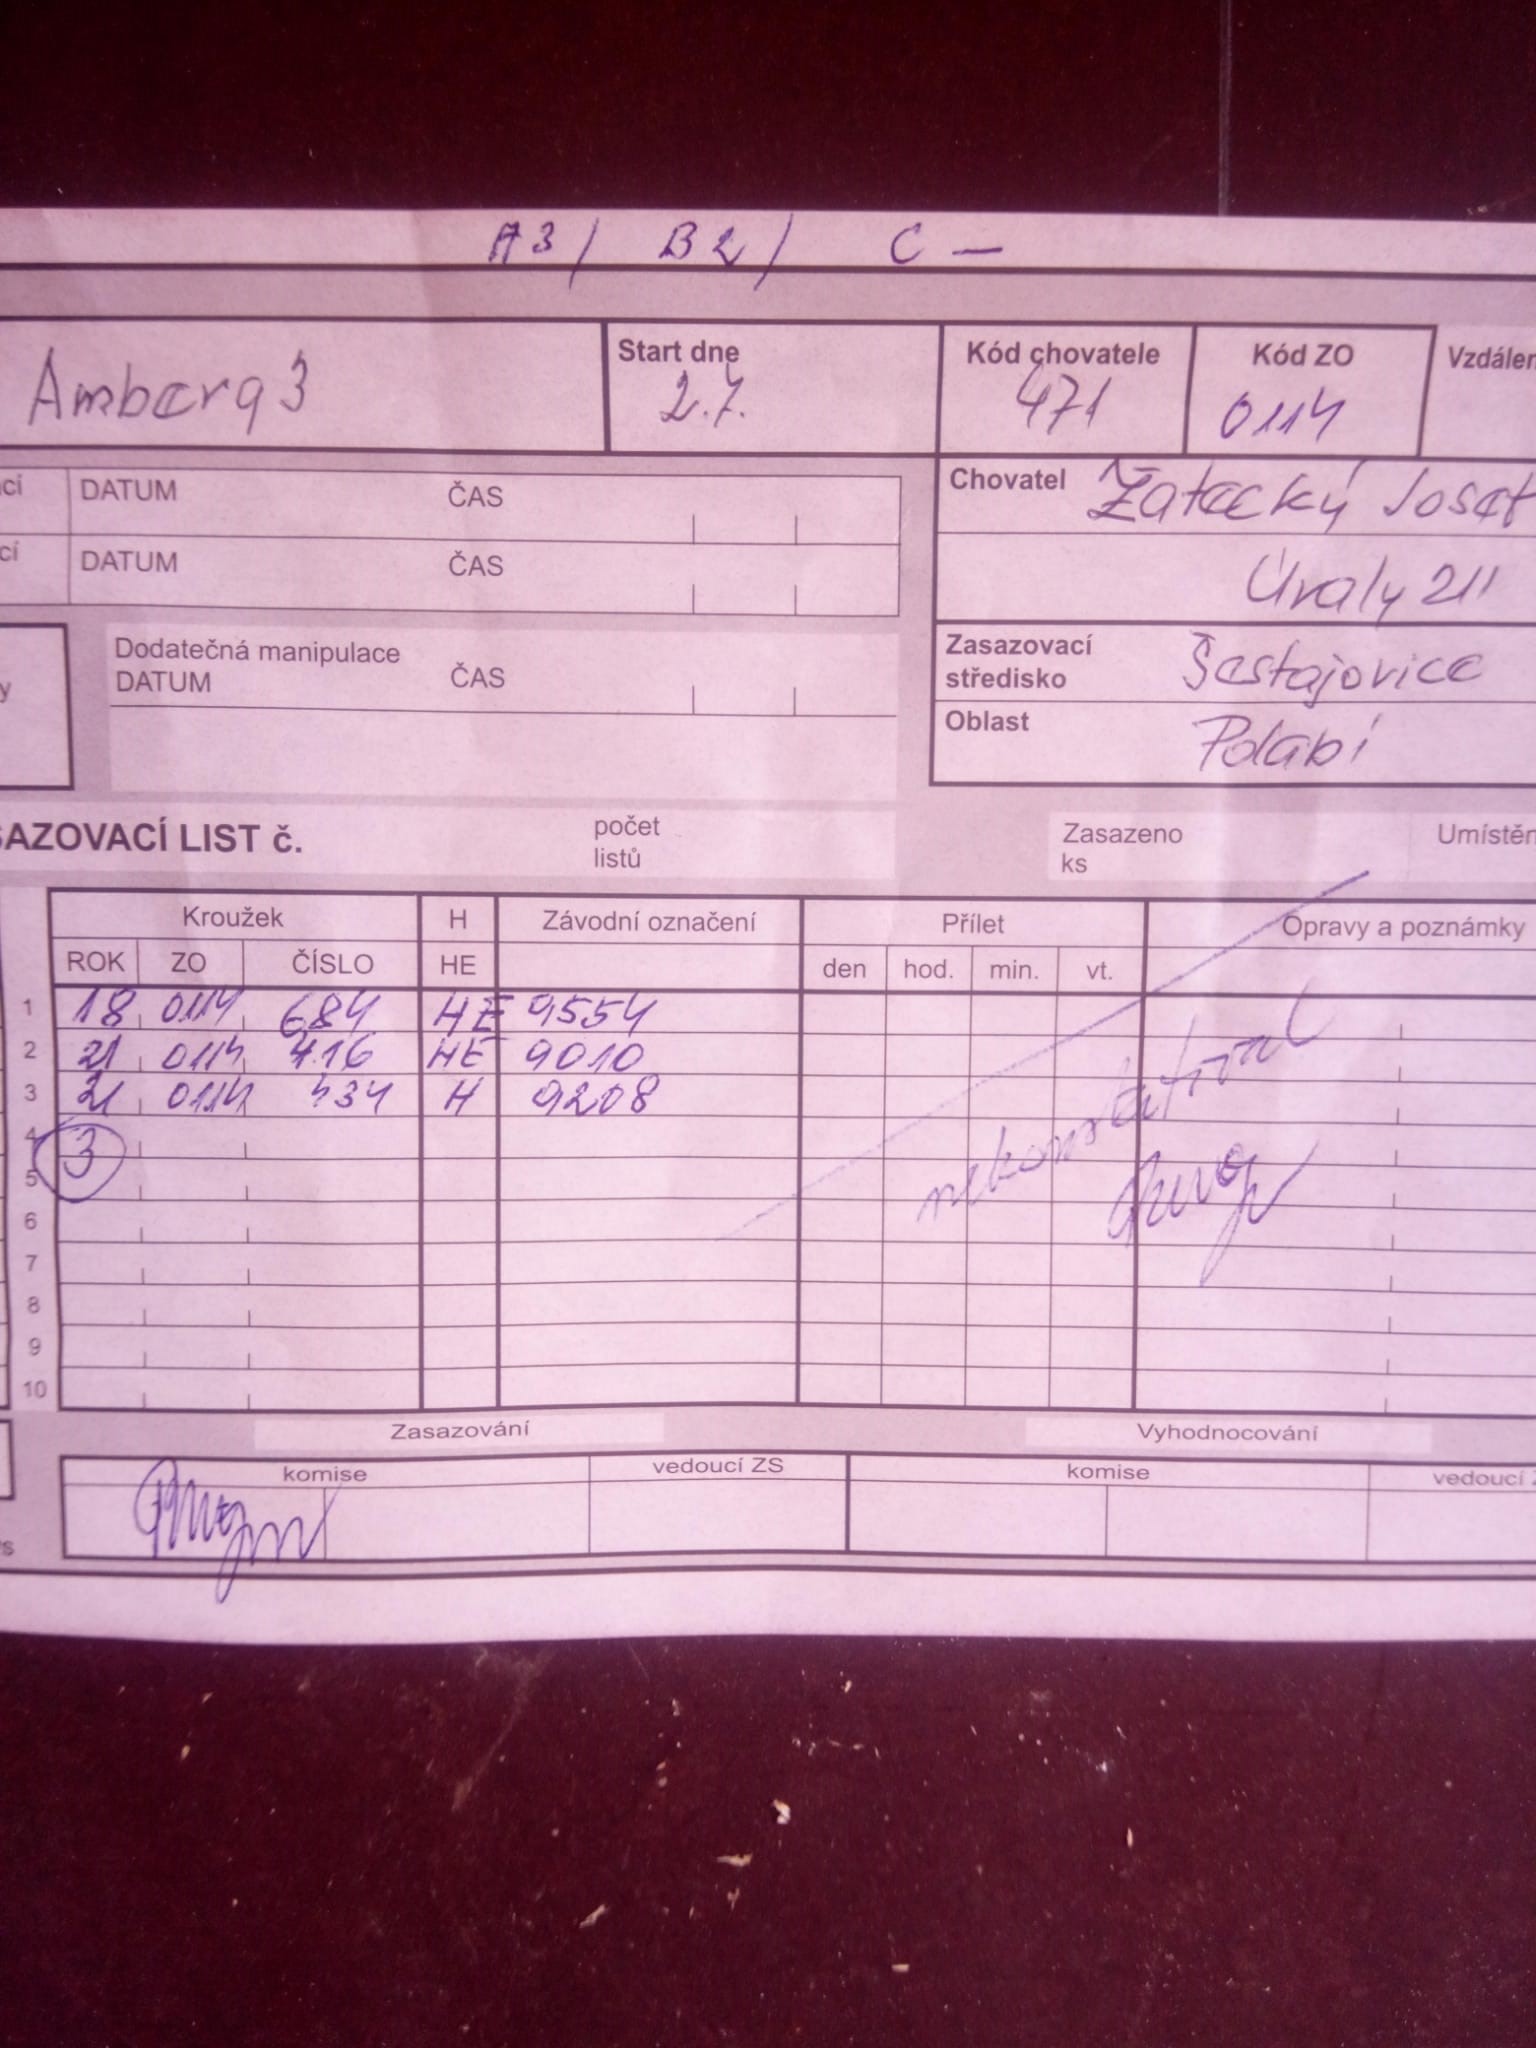 A3/ B2/ C –
Amberg 3
Start dne
2.7.
Kód chovatele
471
Kód ZO
0114
Vzdálen
cí DATUM ČAS
cí DATUM ČAS
Chovatel Žatecký Josef
Úvaly 211
Dodatečná manipulace
DATUM ČAS
Zasazovací
středisko Šestajovice
Oblast Polabí
SAZOVACÍ LIST č.
počet
listů
Zasazeno
ks
Umístěn
Kroužek H Závodní označení Přílet Opravy a poznámky
ROK ZO ČÍSLO HE den hod. min. vt.
1 18 0114 684 HE 9554
2 21 0114 416 HE 9010
3 21 0114 434 H 9208
4
3
5
6
7
8
9
10
nekonstatoval
Zasazování Vyhodnocování
komise vedoucí ZS komise vedoucí Z